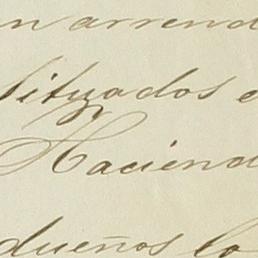 n arrend
situados e
Haciend
dueños lo